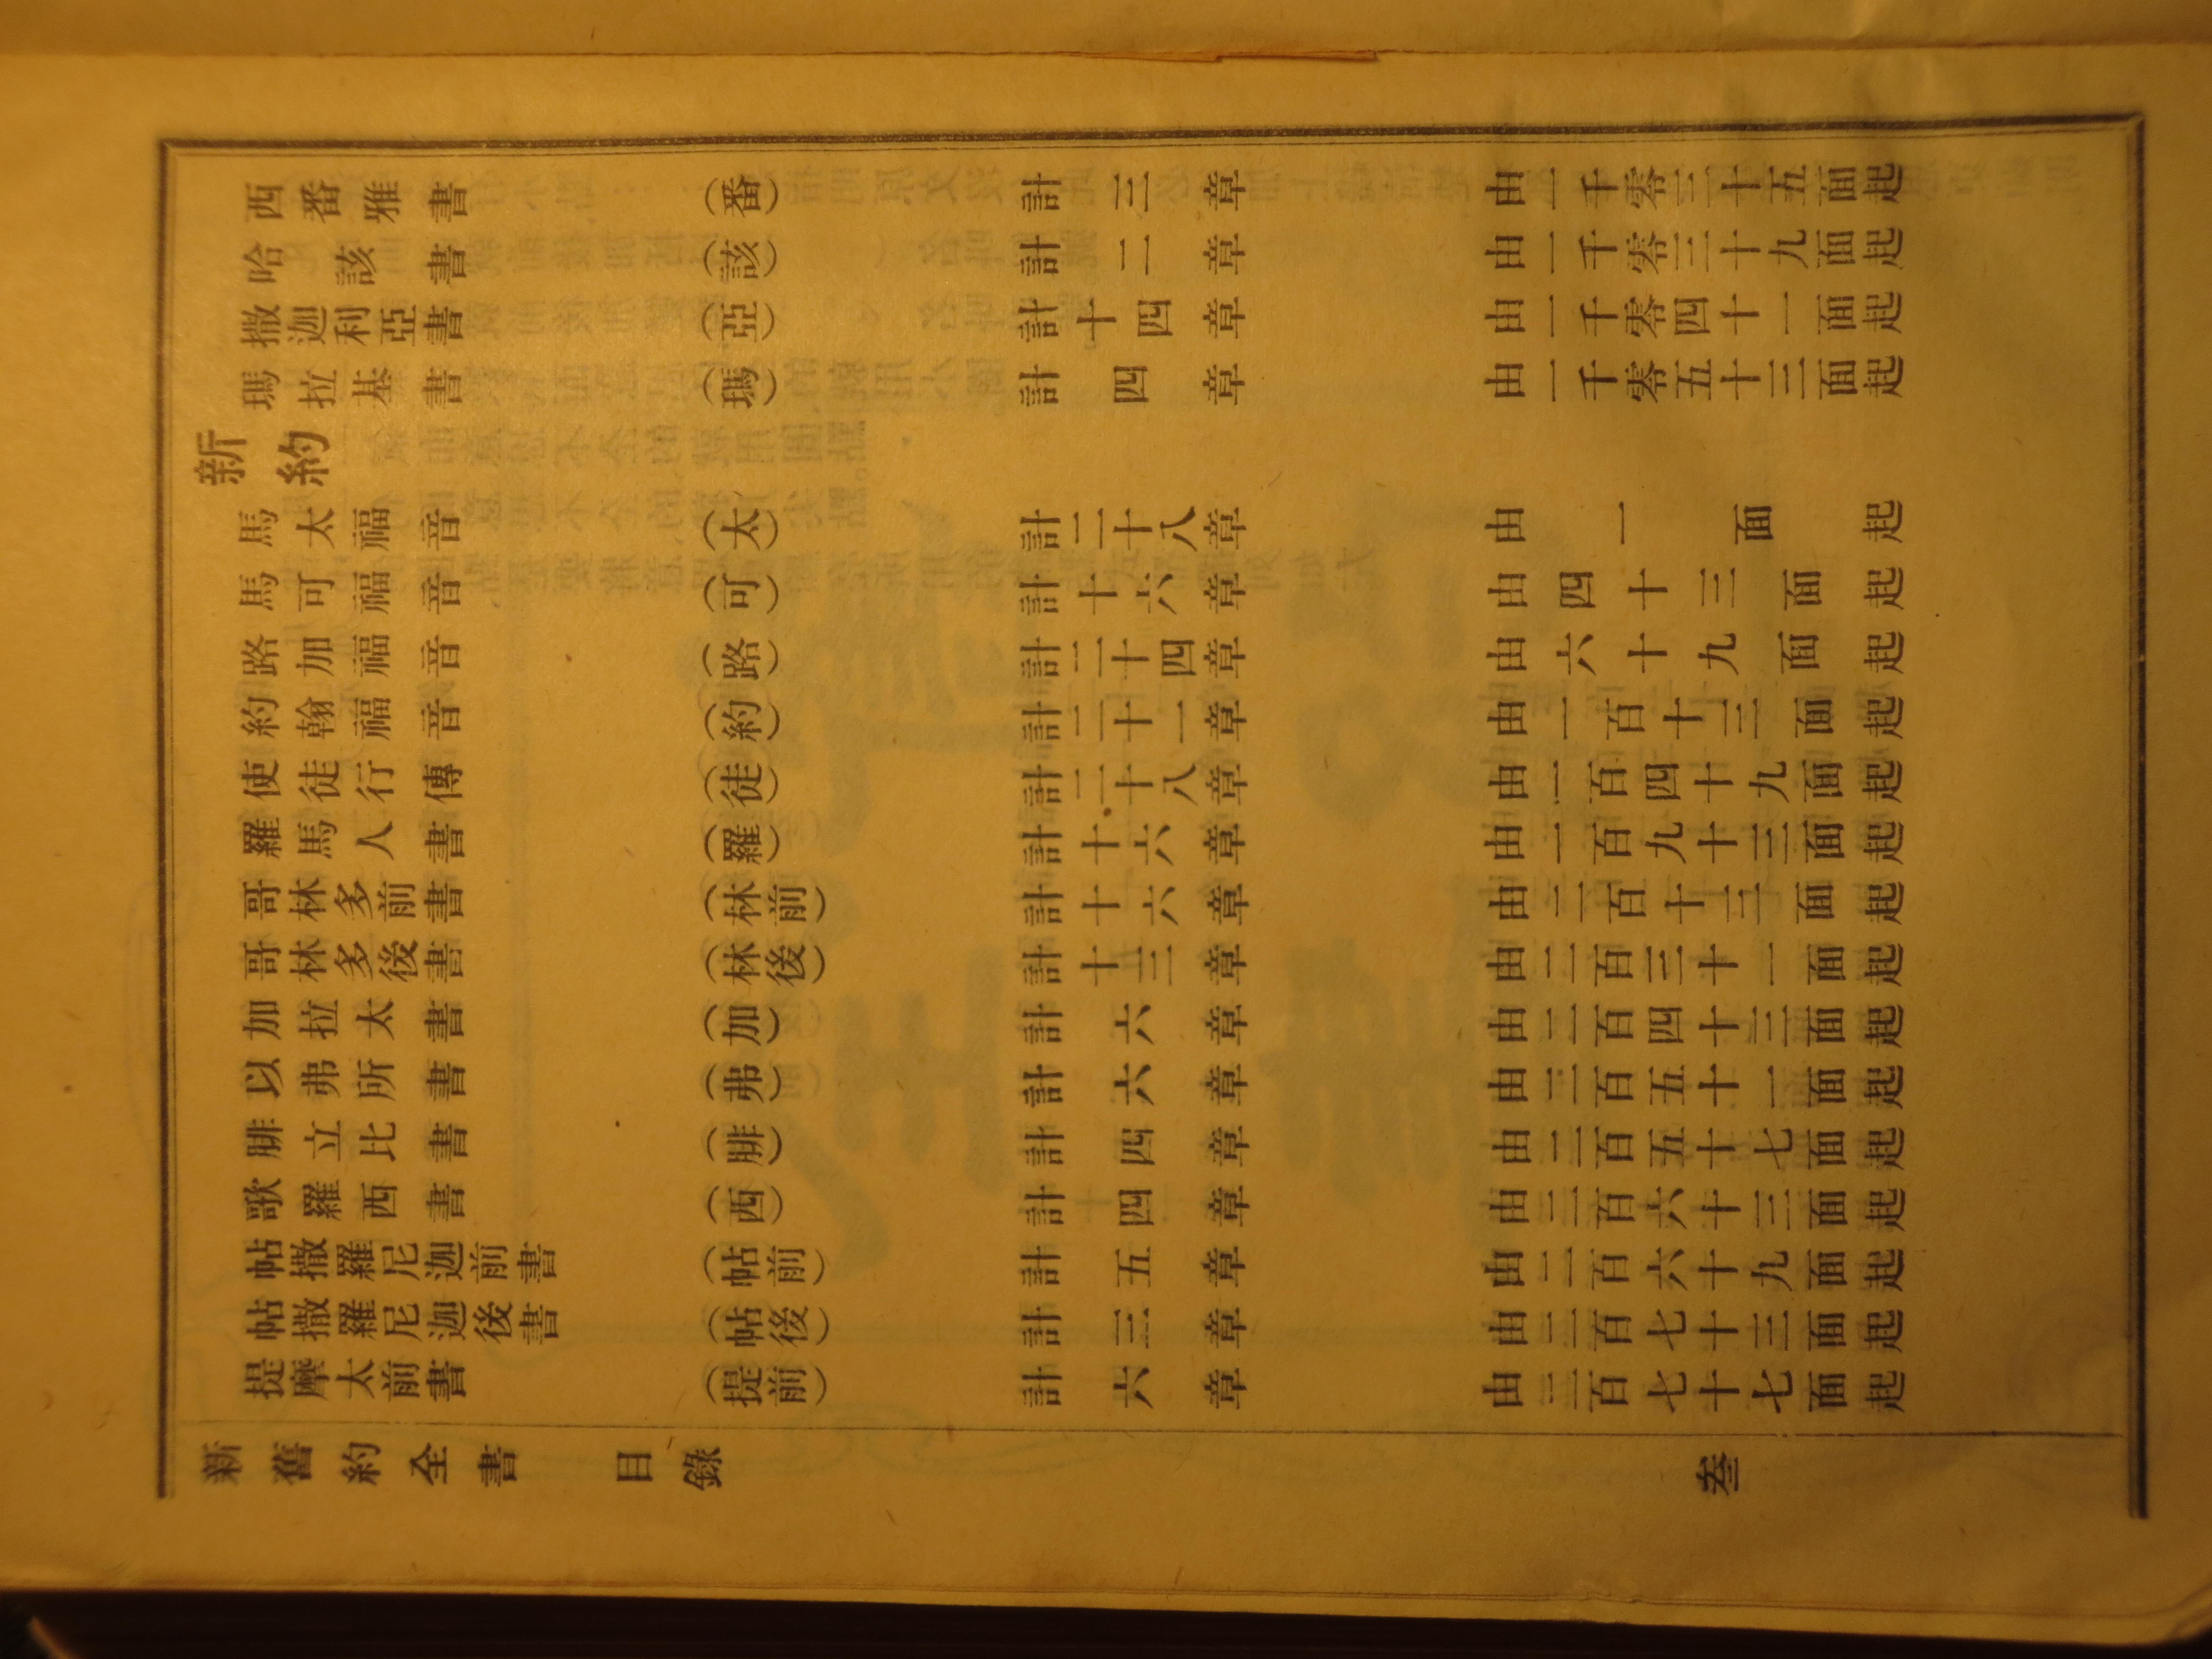 西番雅書 （番） 計三章 由一千零三十五面起
哈該書 （該） 計二章 由一千零三十九面起
撒迦利亞書 （亞） 計十四章 由一千零四十一面起
瑪拉基書 （瑪） 計四章 由一千零五十三面起
新約
馬太福音 （太） 計二十八章 由一面起
馬可福音 （可） 計十六章 由四十三面起
路加福音 （路） 計二十四章 由六十九面起
約翰福音 （約） 計二十一章 由一百十三面起
使徒行傳 （徒） 計二十八章 由一百四十九面起
羅馬人書 （羅） 計十六章 由一百九十三面起
哥林多前書 （林前） 計十六章 由二百十三面起
哥林多後書 （林後） 計十三章 由二百三十一面起
加拉太書 （加） 計六章 由二百四十三面起
以弗所書 （弗） 計六章 由二百五十一面起
腓立比書 （腓） 計四章 由二百五十七面起
歌羅西書 （西） 計四章 由二百六十三面起
帖撒羅尼迦前書 （帖前） 計五章 由二百六十九面起
帖撒羅尼迦後書 （帖後） 計三章 由二百七十三面起
提摩太前書 （提前） 計六章 由二百七十七面起
新舊約全書 目錄 叁